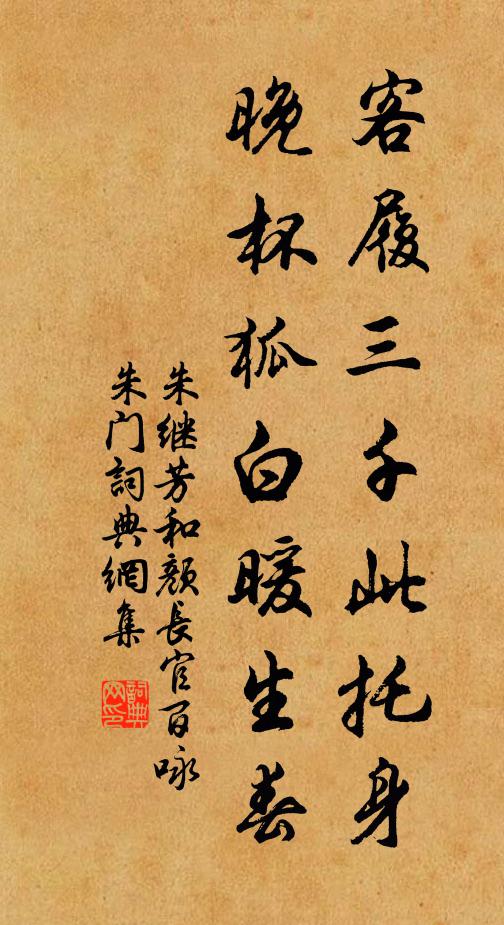 客履三千此托身
晚杯狐白暖生春
朱继芳和颜長官百咏
朱门詞典網集
詞典
网印